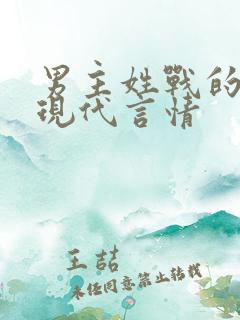 男主姓戰的
現代言情
王喆
未经同意禁止转载